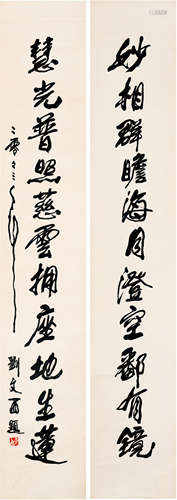 妙相群瞻海月澄空有鏡
慧光普照慈雲擁座地生蓮
二零々三年
劉文西題